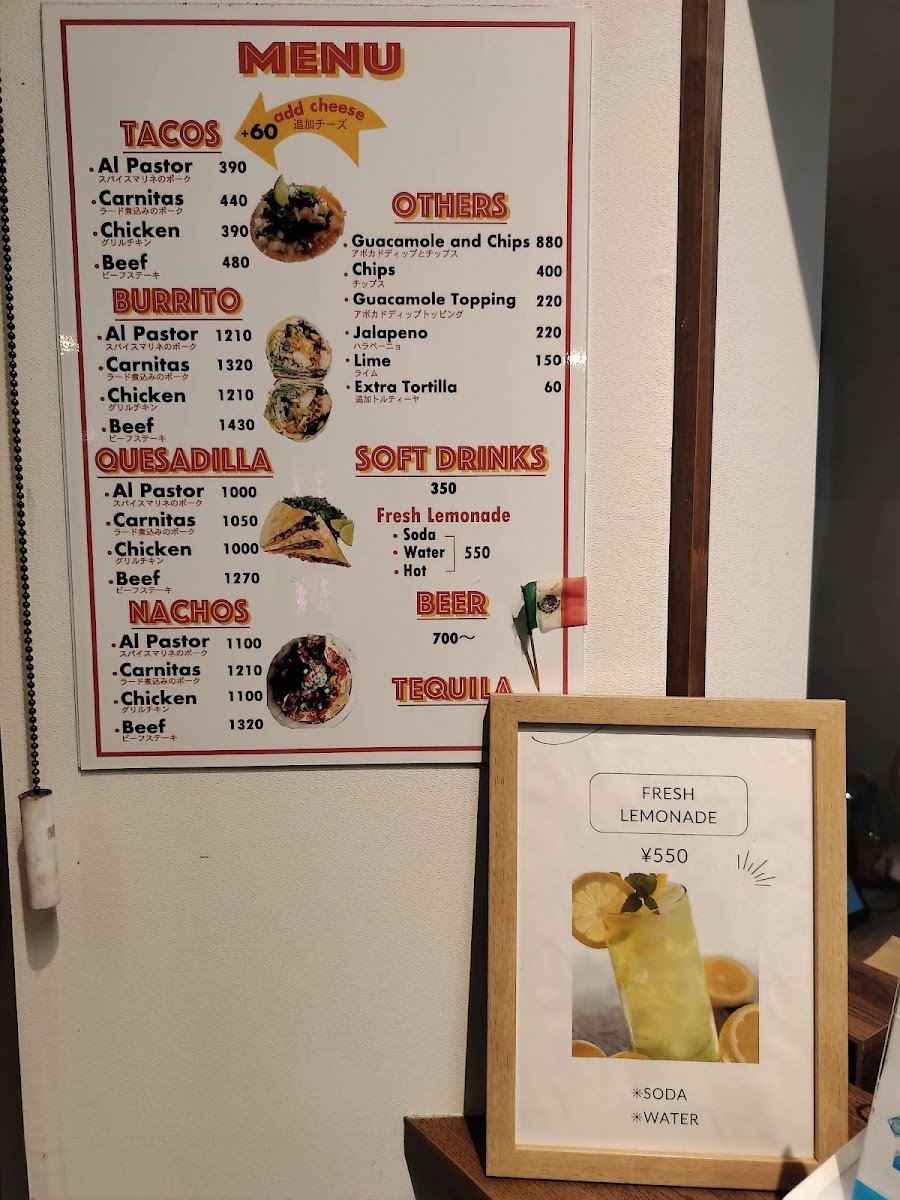 MENU
TACOS
+60 add cheese
追加チーズ
Al Pastor 390
スパイスマリネのポーク
Carnitas 440
ラード煮込みのポーク
Chicken 390
グリルチキン
Beef 480
ビーフステーキ
BURRITO
Al Pastor 1210
スパイスマリネのポーク
Carnitas 1320
ラード煮込みのポーク
Chicken 1210
グリルチキン
Beef 1430
ビーフステーキ
QUESADILLA
Al Pastor 1000
スパイスマリネのポーク
Carnitas 1050
ラード煮込みのポーク
Chicken 1000
グリルチキン
Beef 1270
ビーフステーキ
NACHOS
Al Pastor 1100
スパイスマリネのポーク
Carnitas 1210
ラード煮込みのポーク
Chicken 1100
グリルチキン
Beef 1320
ビーフステーキ
OTHERS
Guacamole and Chips 880
アボカドディップとチップス
Chips 400
チップス
Guacamole Topping 220
アボカドディップトッピング
Jalapeno 220
ハラペーニョ
Lime 150
ライム
Extra Tortilla 60
追加トルティーヤ
SOFT DRINKS
350
Fresh Lemonade
• Soda
• Water 550
• Hot
BEER
700〜
TEQUILA
FRESH
LEMONADE
¥550
✳SODA
✳WATER